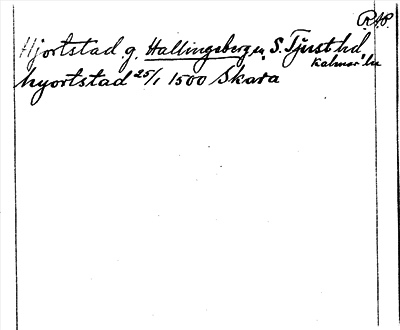 RAP.
Hjortstad g. Hallingeberg sn, S. Tjust hd
Kalmar län
hyortstad 25/1 1500 Skara